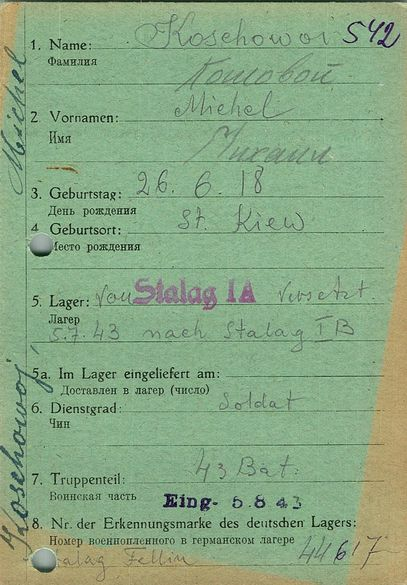 1. Name: Koschowoi 542
Фамилия Кошовой
2. Vornamen: Michel
Имя Михаил
3. Geburtstag: 26. 6. 18
День рождения
4. Geburtsort: St. Kiew
Место рождения
5. Lager: Von Stalag IA versetzt
Лагер 5.7.43 nach Stalag IB
5a. Im Lager eingeliefert am:
Доставлен в лагер (число)
6. Dienstgrad: Soldat
Чин
7. Truppenteil: 43 Bat.
Воинская часть Eing- 5.8.43
8. Nr. der Erkennungsmarke des deutschen Lagers:
Номер военнопленного в германском лагере 44617
Stalag Fellin
Koschowoj Michel